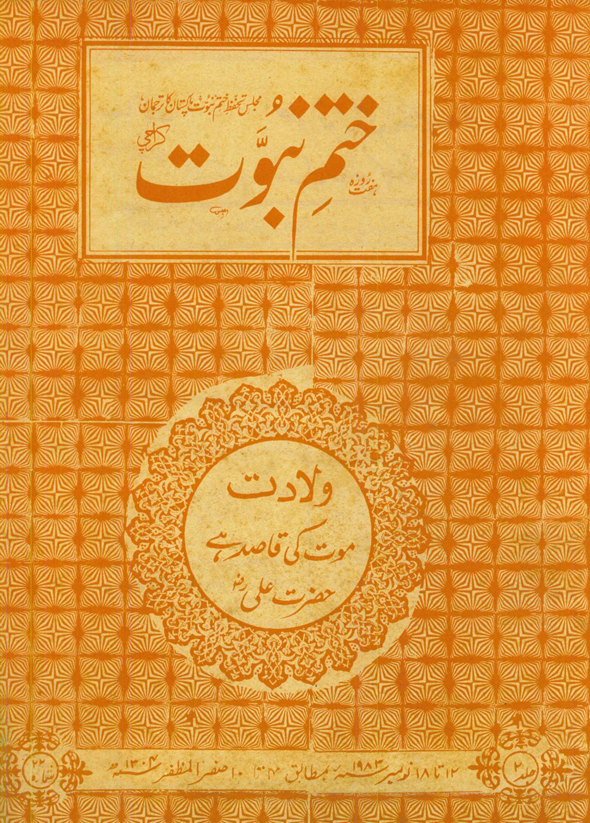 مجلس تحفظ ختم نبوت پاکستان کا ترجمان
ہفت روزہ
ختمِ نبوَّت
کراچی
ولادت
موت کی قاصد ہے
حضرت علیؓ
جلد ۲
۱۲ تا ۱۸ نومبر ۱۹۸۳ء بمطابق تا ۱۰ صفر المظفر ۱۴۰۴ھ
شمارہ ۲۳